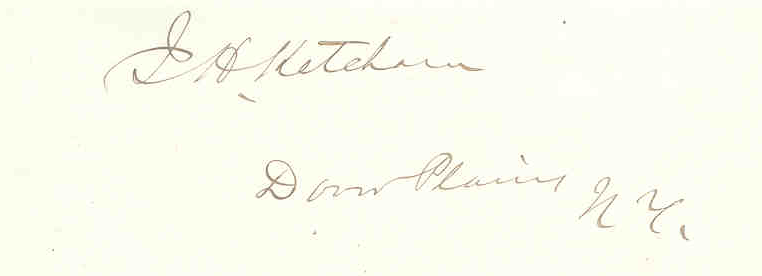 J H Ketcham
Dover Plains N.Y.